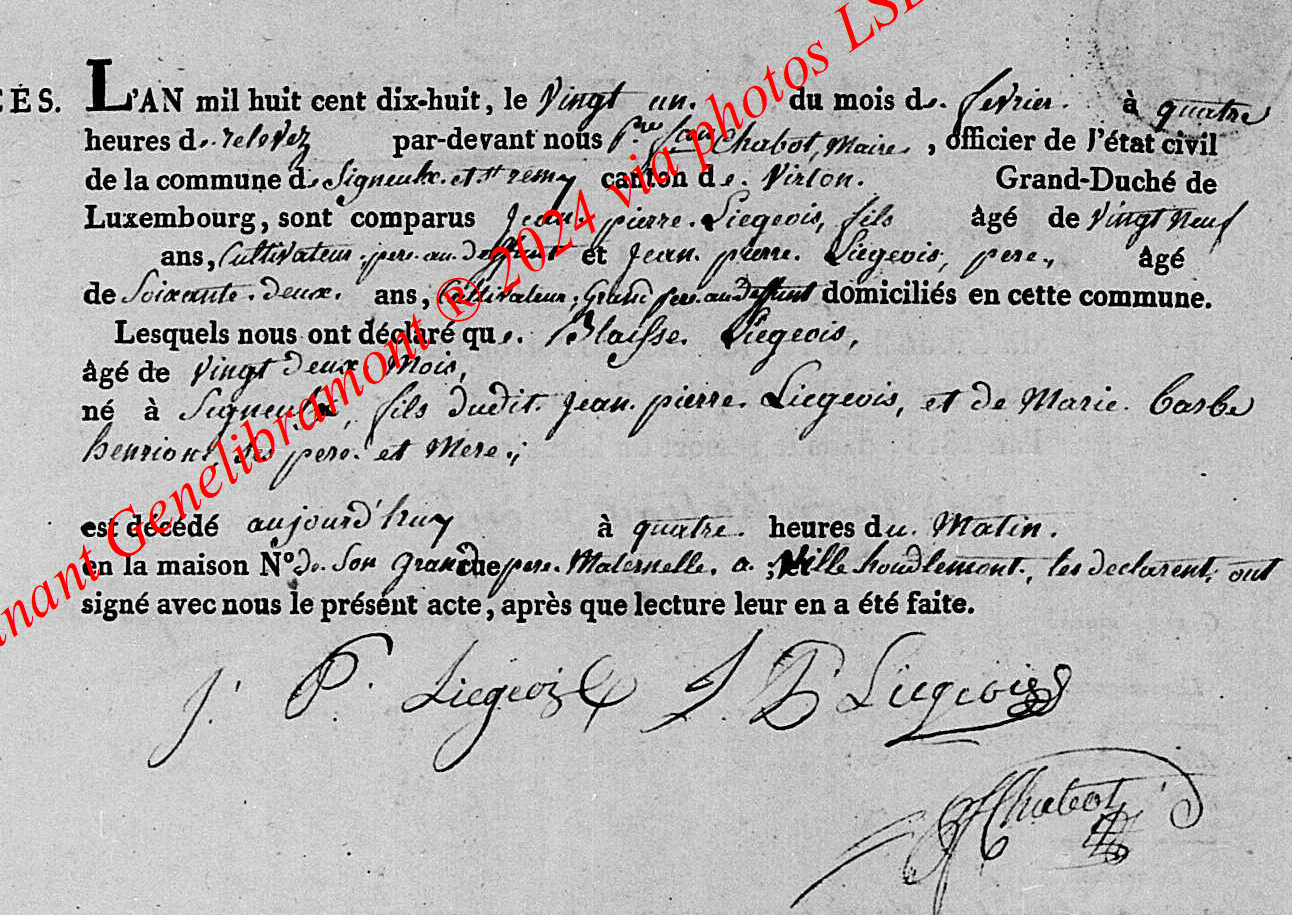 ÉS. L'AN mil huit cent dix-huit, le Vingt un. du mois de fevrier. à quatre
heures de relevez par-devant nous Pre Jean Chabot, Maire, officier de l'état civil
de la commune de Signeulx et st remy canton de Virton. Grand-Duché de
Luxembourg, sont comparus Jean pierre Liegeois, fils âgé de Vingt Neuf
ans, Cultivateur, pere au deffunt et Jean pierre Liegeois, pere, âgé
de Soixante deux. ans, Cultivateur, Grand pere au deffunt domiciliés en cette commune.
Lesquels nous ont déclaré que Blaisse Liegeois,
âgé de Vingt deux Mois,
né à Signeulx, fils dudit Jean pierre Liegeois, et de Marie Barbe
henrion, ses pere et Mere,;
est décédé aujourd'huy à quatre heures du Matin.
en la maison N° de Son Grand rue pere Maternelle a Ville houdlemont, les declarent, ont
signé avec nous le présent acte, après que lecture leur en a été faite.
J. P. Liegeois J. P. Liegeois
PJChabot
nant Genelibramont ® 2024 via photos LSD